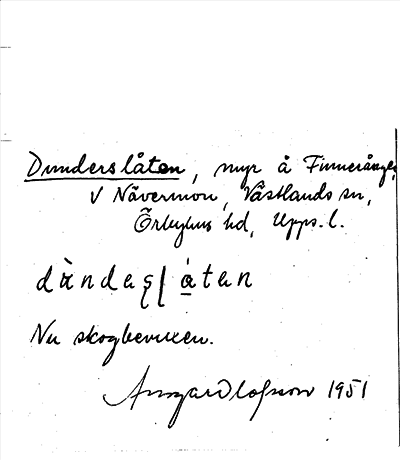 Dunderslåten, myr å Finnerånges,
V Nävermon, Västlands sn,
Örbyhus hd, Upps. l.
dàndeʂɭátan
Nu skogbevuxen.
Ansgar Olofsson 1951